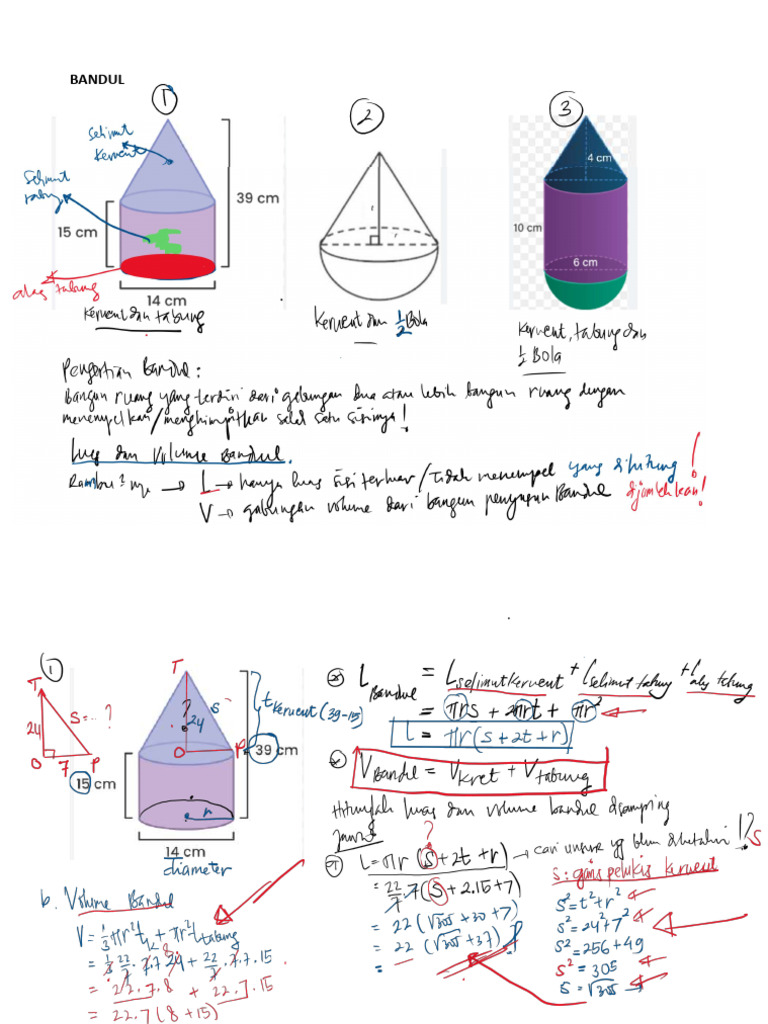 BANDUL
1
2
3
Selimut
kerucut
Selimut
tabung
15 cm
39 cm
14 cm
alas tabung
kerucut dan tabung
Kerucut dan 1/2 Bola
4 cm
10 cm
6 cm
Kerucut, tabung dan
1/2 Bola
Pengertian Bandul :
Bangun ruang yang terdiri dari gabungan dua atau lebih bangun ruang dengan
menempelkan/menghimpitkan salah satu sisinya!
Luas dan Volume Bandul.
Rambu² nya → L → hanya luas sisi terluar/Tidak menempel yang dihitung!
V → gabungan volume dari bangun penyusun Bandul dijumlahkan!
1
T
24
S = ..?
O
7
P
T
?
24
S
O
P
t kerucut (39-15)
39 cm
15 cm
r
14 cm
diameter
L Bandul = L selimut kerucut + L selimut tabung + L alas tabung
= πrs + 2πrt + πr²
L = πr(s+2t+r)
V Bandul = V kret + V tabung
Hitunglah luas dan volume bandul disamping
Jawab
?
L = πr (s+2t+r) → cari unsur yg belum diketahui !? s
= 22/7 . 7 (s + 2.15 + 7)
= 22 (√305 + 30 + 7)
= 22 (√305 + 37)
=
s : garis pelukis kerucut
s² = t² + r²
s² = 24² + 7²
s² = 256 + 49
s² = 305
s = √305
b. Volume Bandul
V = 1/3 πr² t k + πr² t tabung
= 1/3 . 22/7 . 7.7 24 + 22/7 . 7.7.15
8
= 22.7.8 + 22.7.15
= 22.7 (8+15)